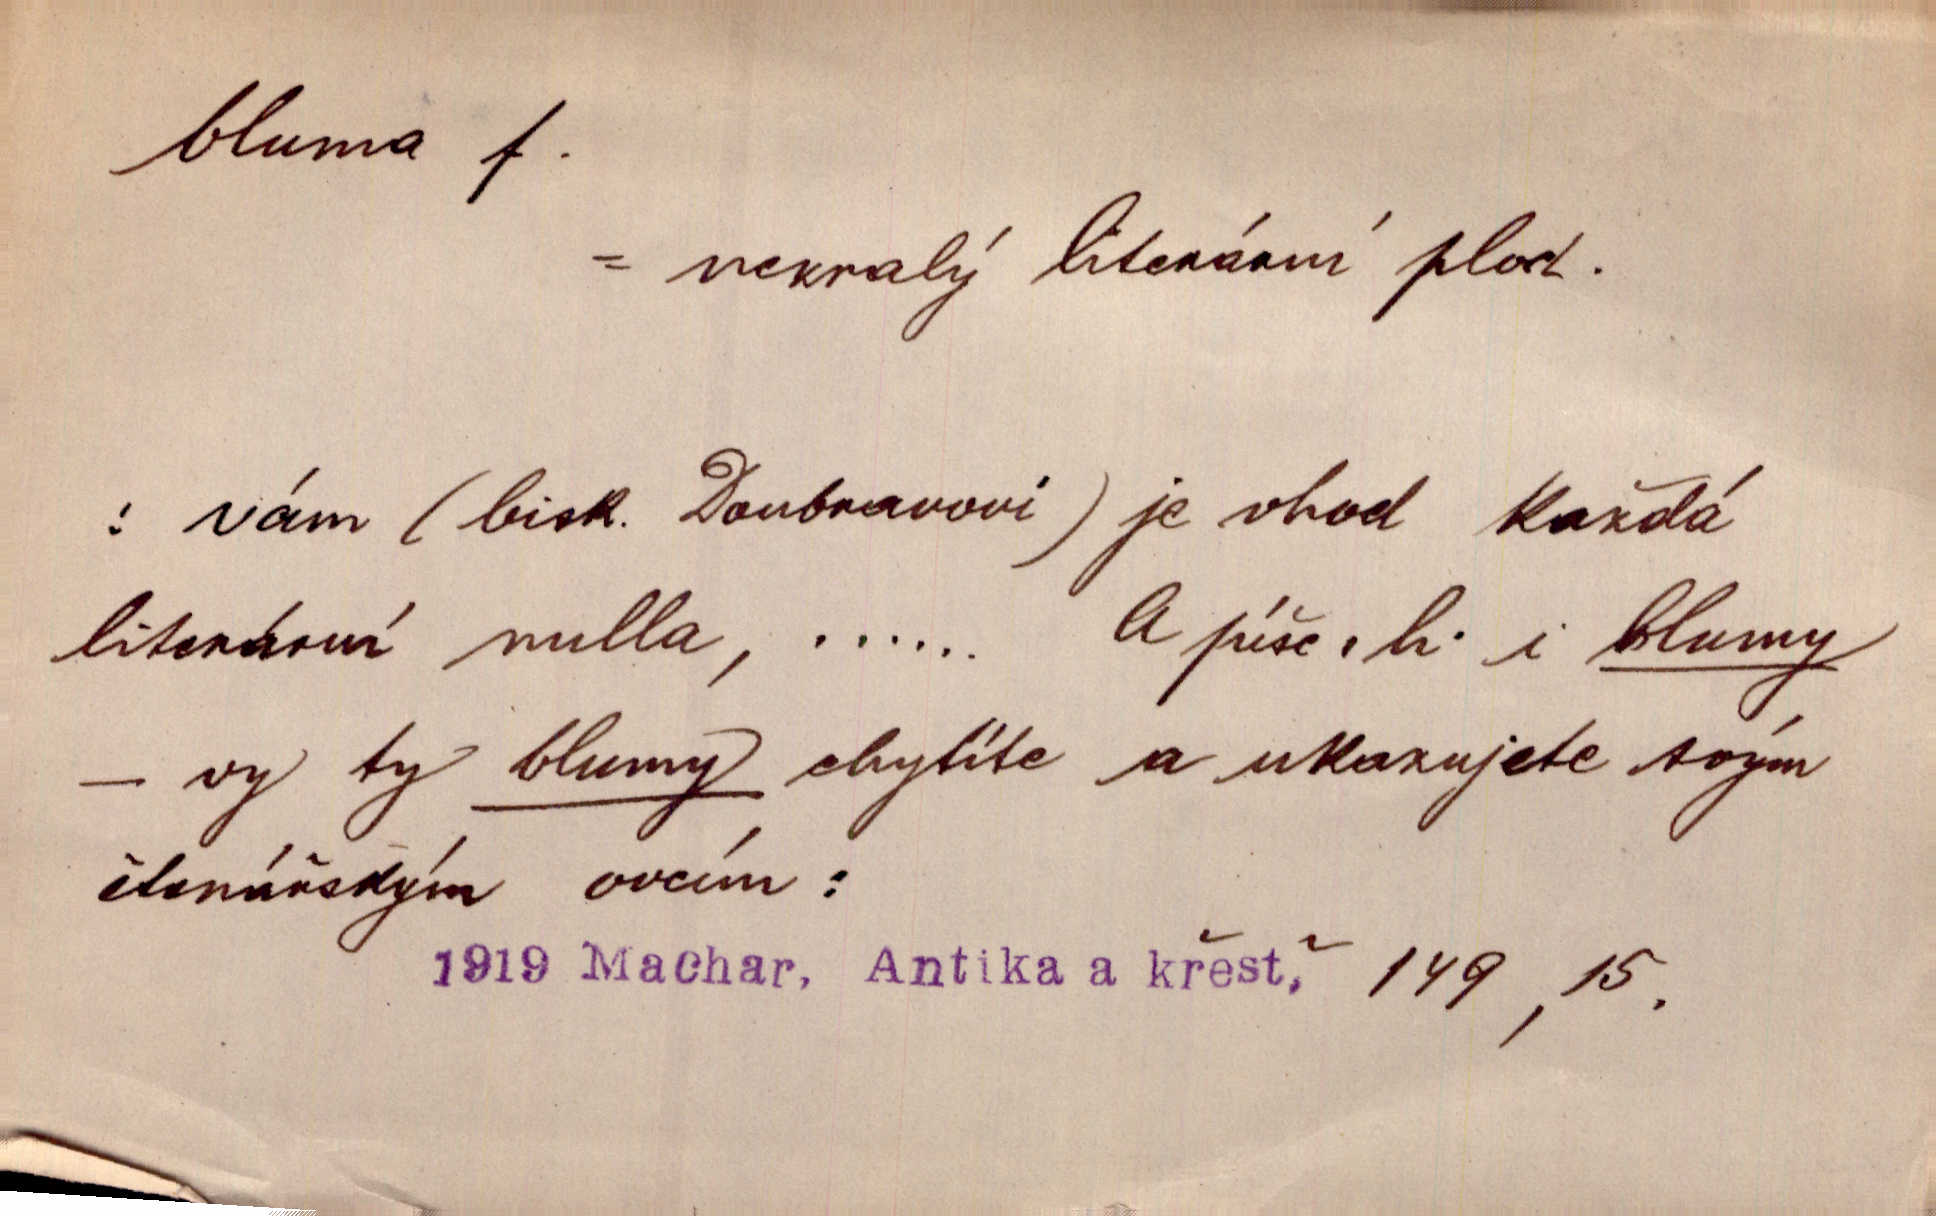 bluma f.
= nezralý literární plod.
: vám (bisk. Doubravovi) je vhod každá
literární nulla, ...... A píše-li i blumy
– vy ty blumy chytíte a ukazujete svým
čtenářským ovcím:
1919 Machar, Antika a křesť. 149, 15.